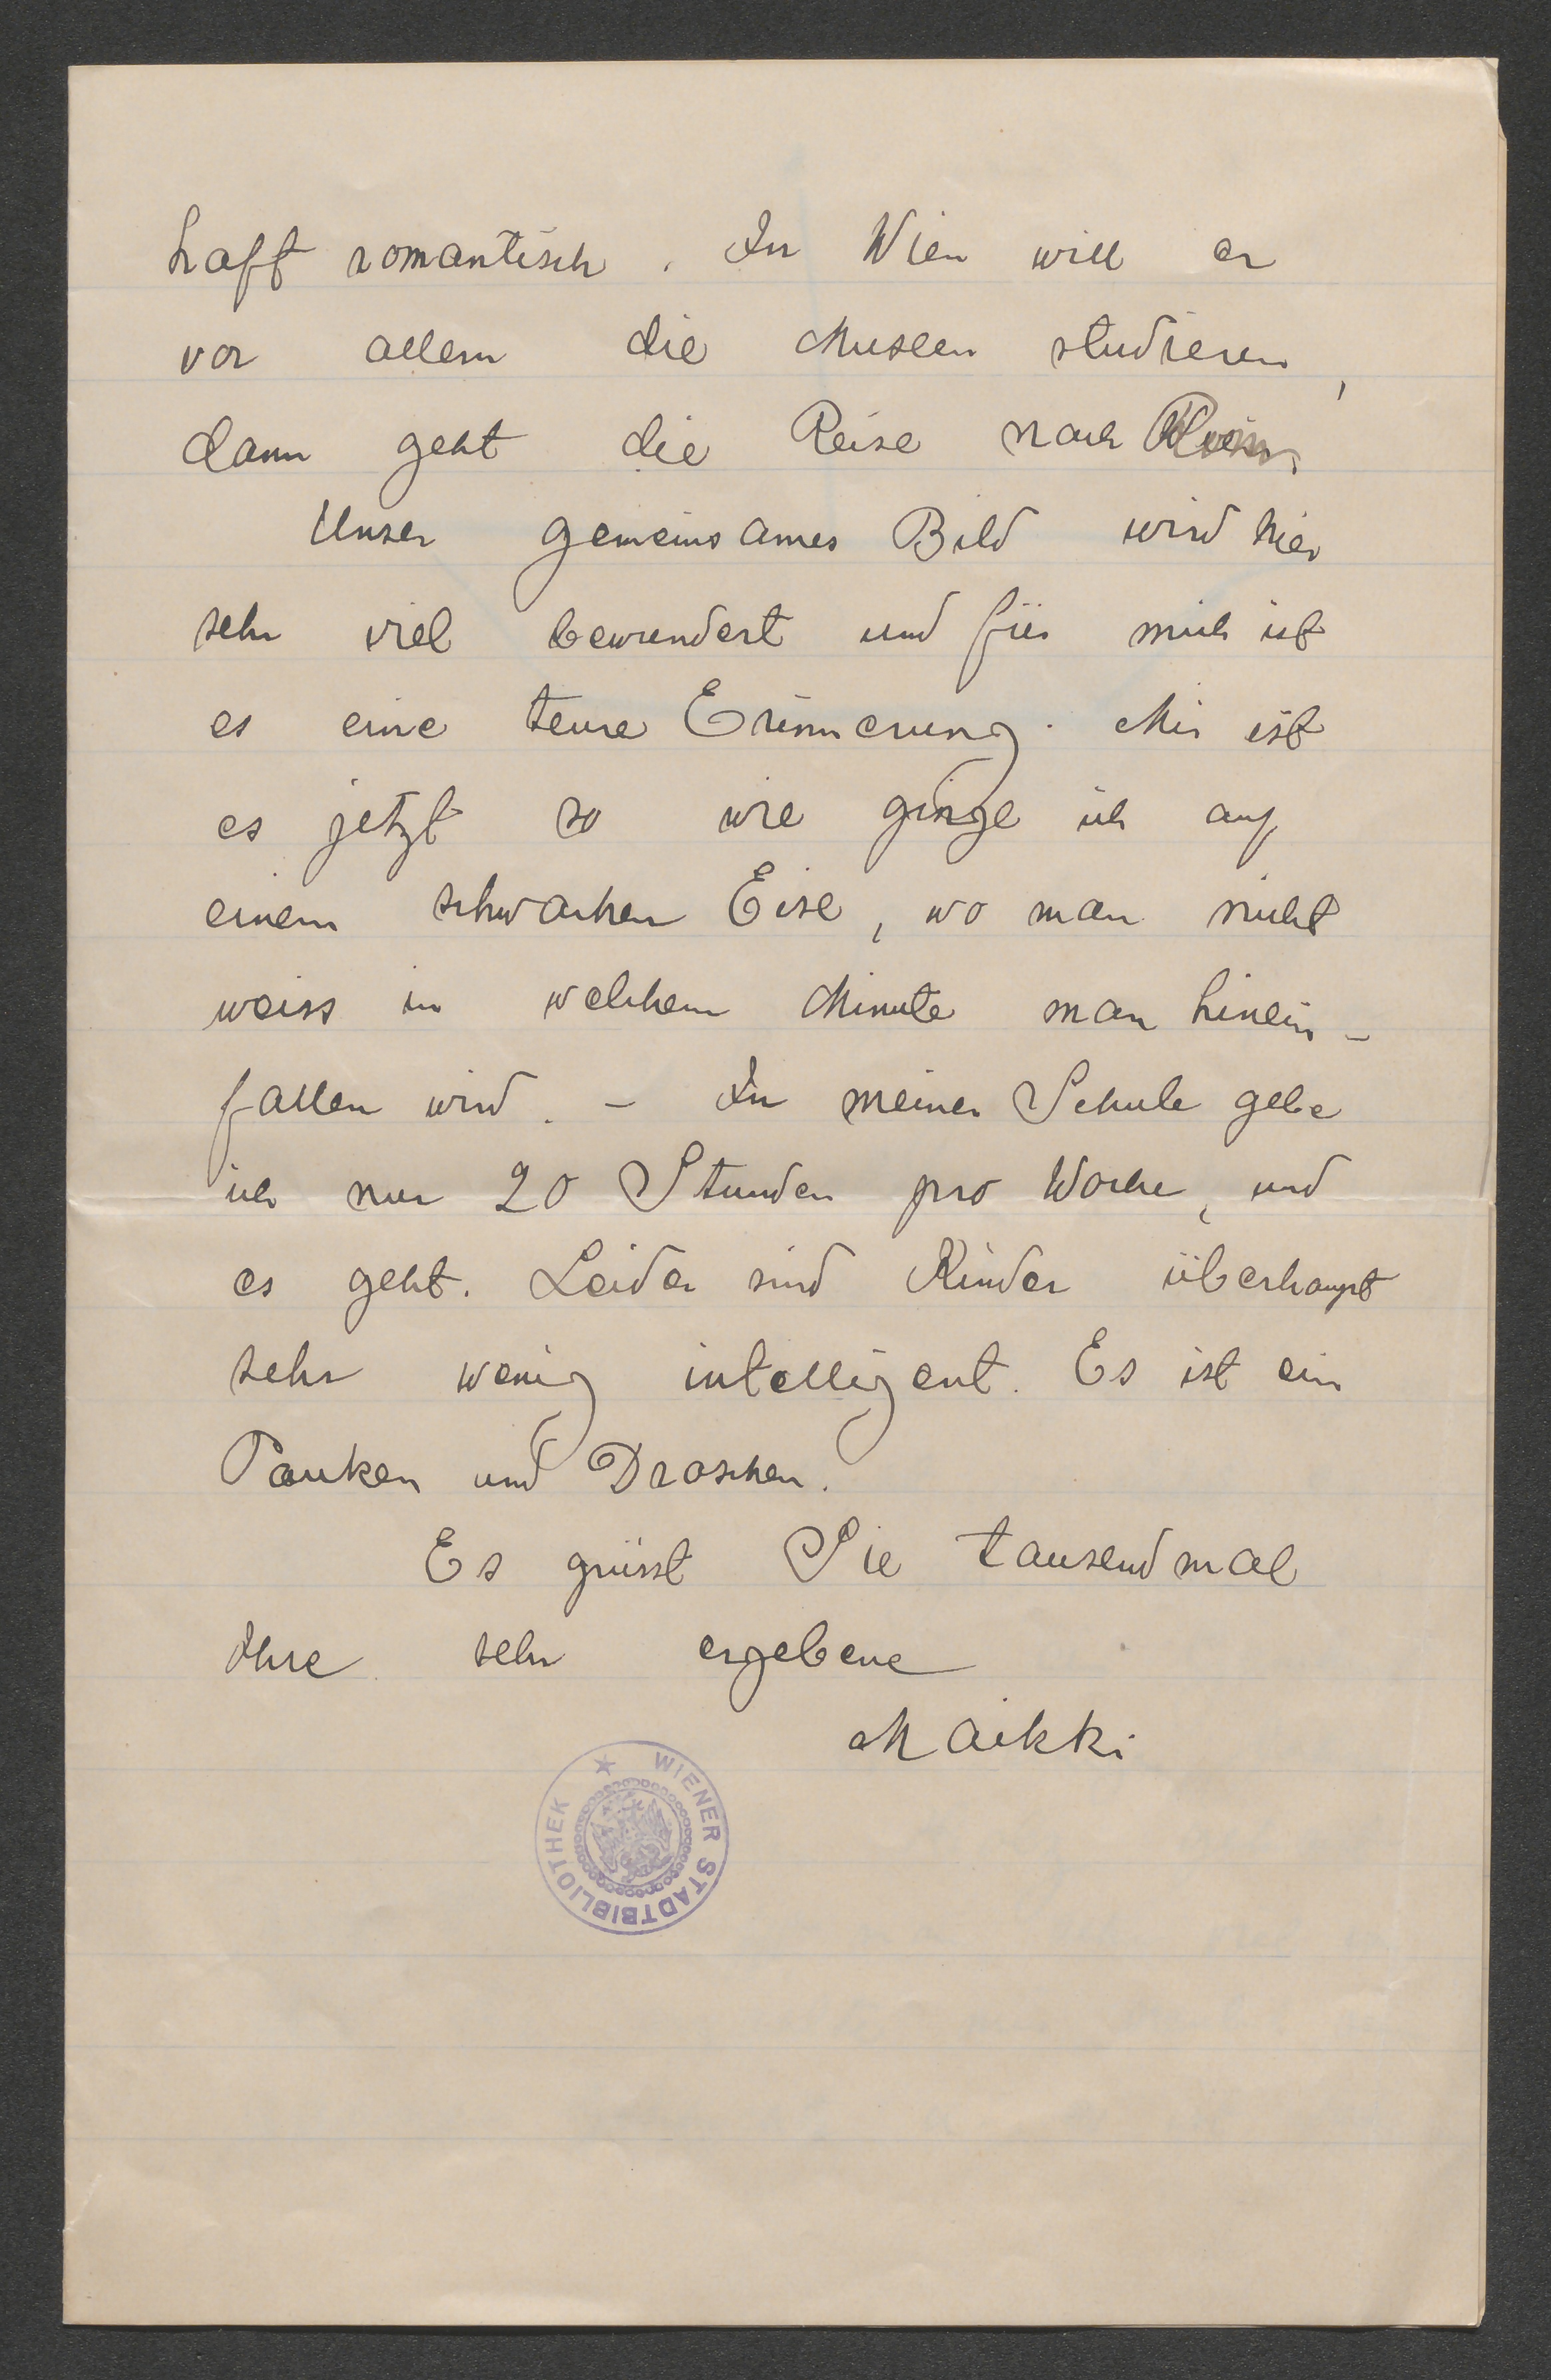 haft romantisch. In Wien will er
vor allem die Museen studieren,
dann geht die Reise nach Rom.
Unser gemeinsames Bild wird hier
sehr viel bewundert und für mich ist
es eine teure Erinnerung. Mir ist
es jetzt so wie ginge ich auf
einem schwachen Eise, wo man nicht
weiss in welchem Minute man hinein-
fallen wird. – In meiner Schule gebe
ich nur 20 Stunden pro Woche, und
es geht. Leider sind Kinder überhaupt
sehr wenig intelligent. Es ist ein
Pauken und Droschen.
Es grüsst Sie tausendmal
Ihre sehr ergebene
Maikki
WIENER STADTBIBLIOTHEK